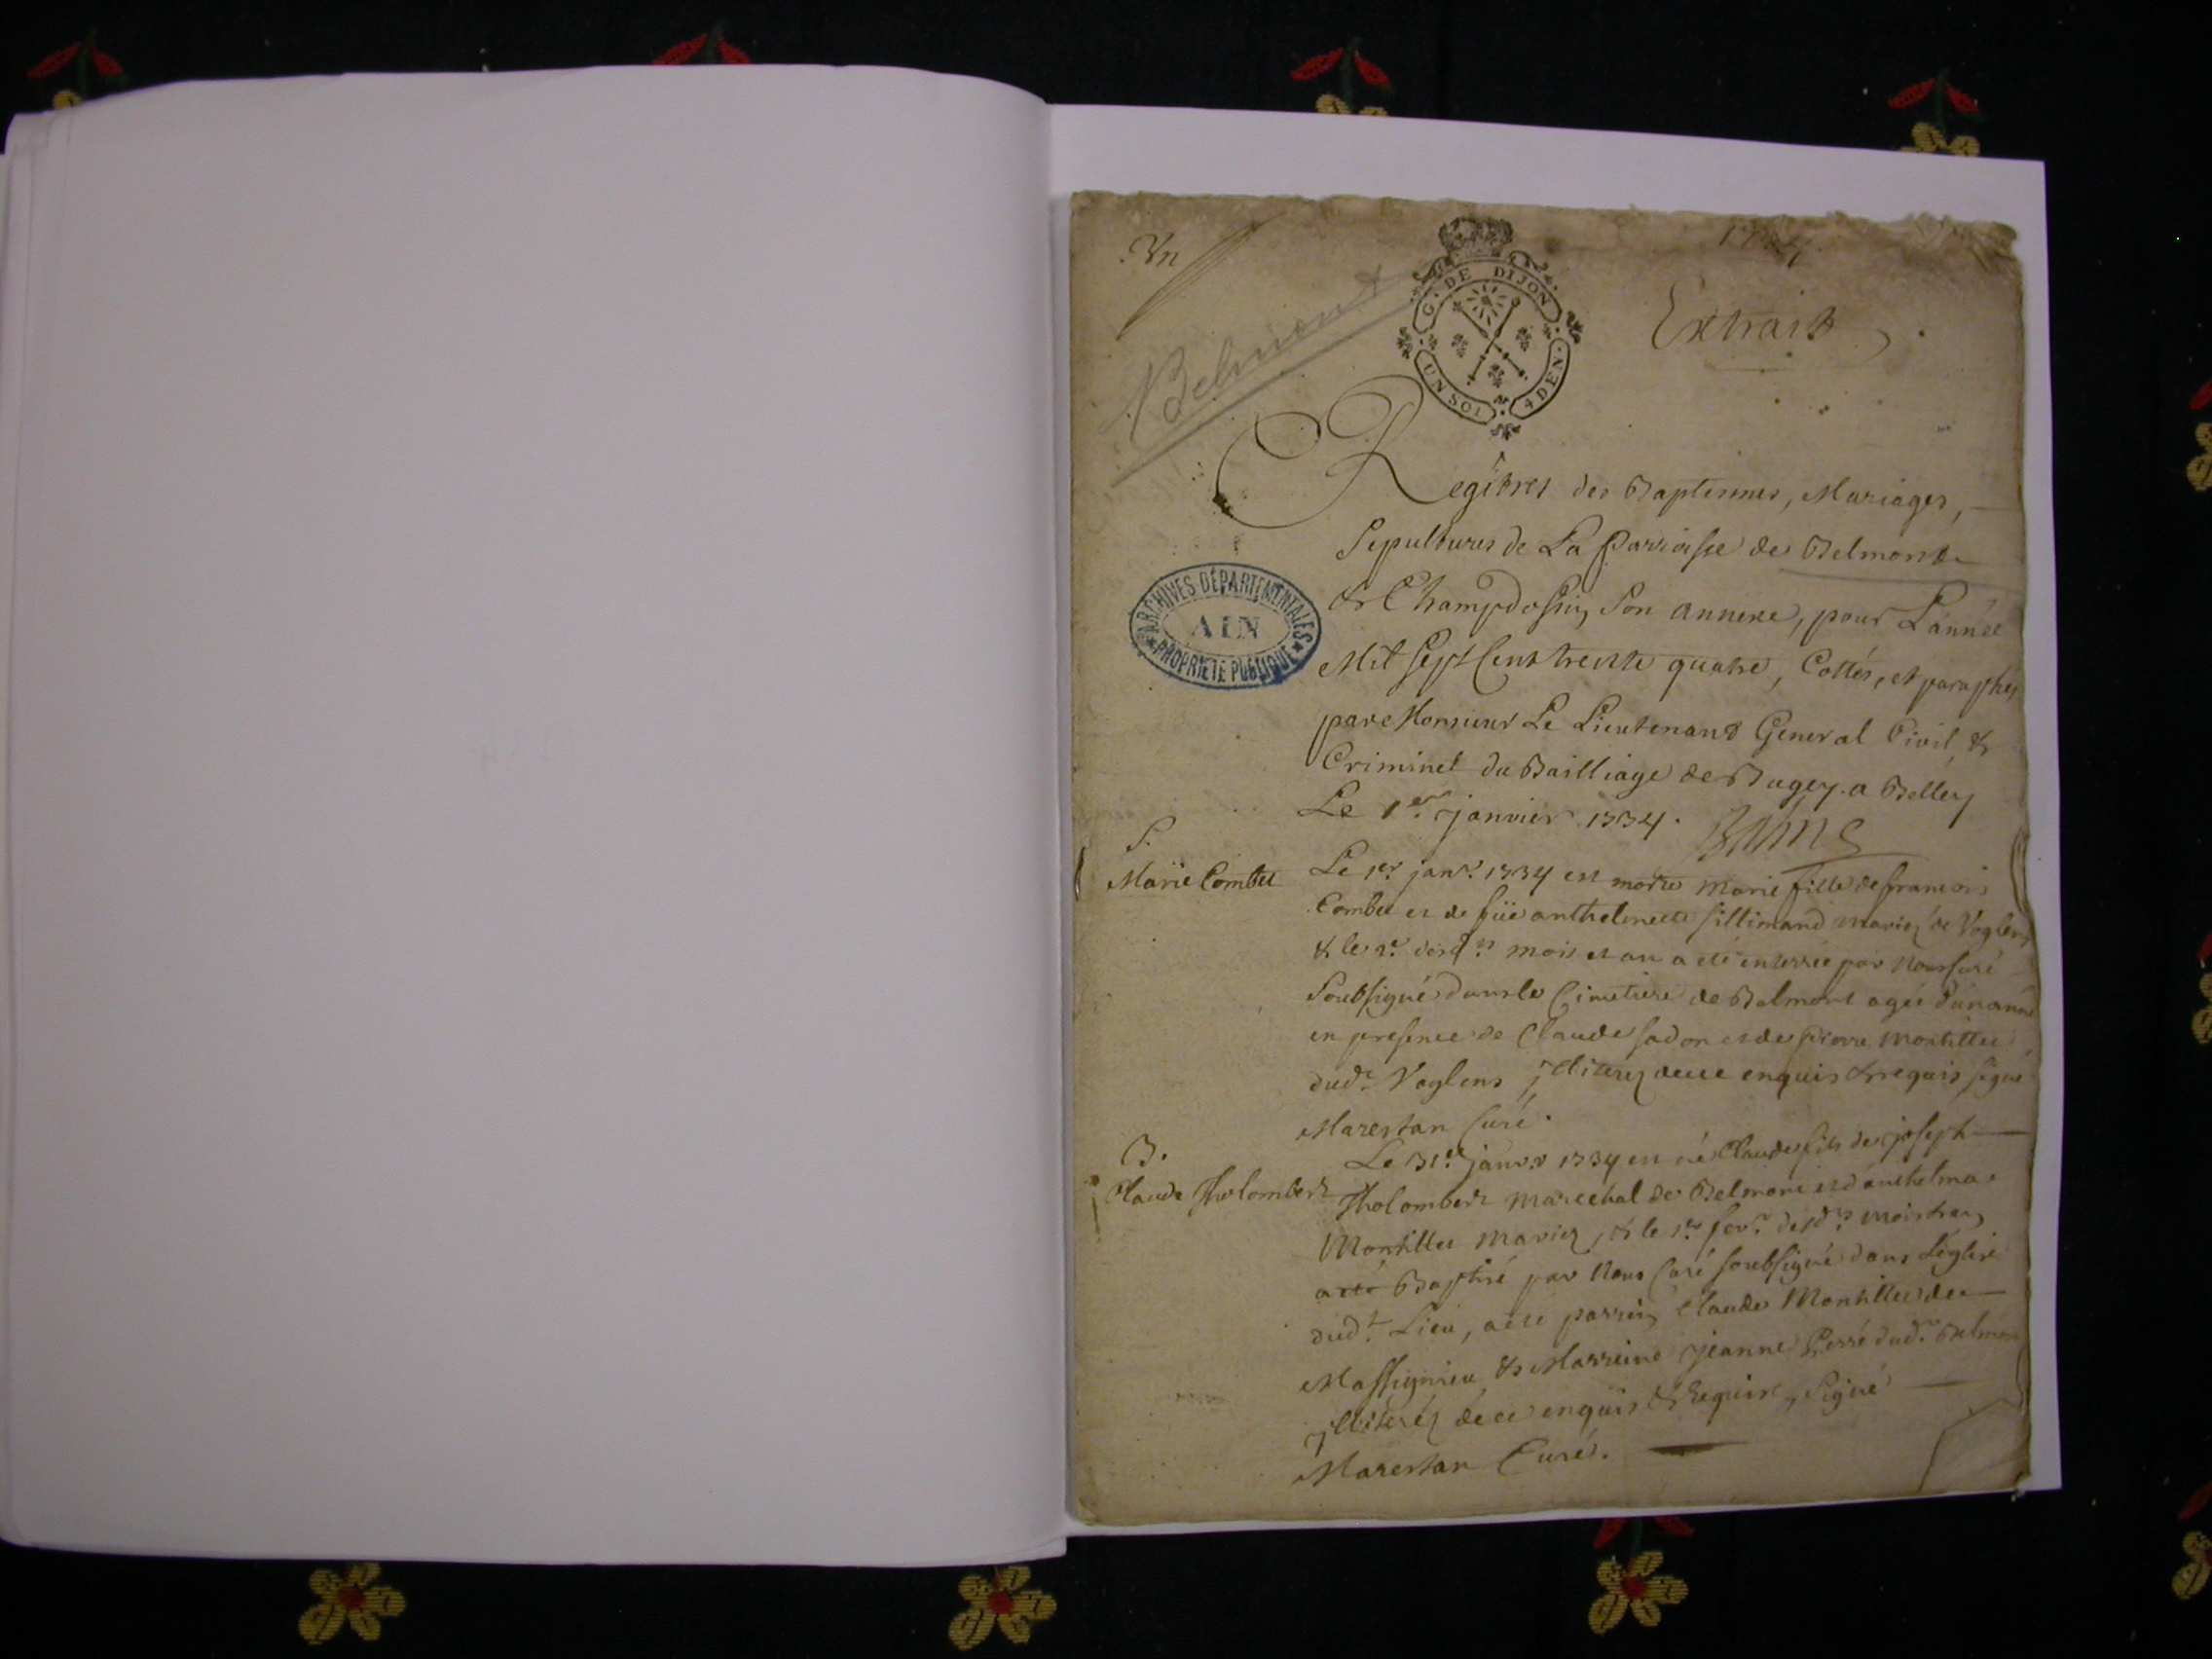 Un
1734
Belmont
G. DE DIJON
UN SOL
4 DEN.
Extrait
Regitres des Baptemes, Mariages,
Sepultures de La Parroisse de Belmont
& Champdossin Son annexe, pour L'année
Mil Sept Cent trente quatre, Cottés, et paraphés
par Monsieur Le Lieutenant General Civil &
Criminel du Bailliage de Bugey a Belley
Le 1er janvier 1734.
ARCHIVES DÉPARTEMENTALES
AIN
PROPRIÉTÉ PUBLIQUE
S.
Marie Combet
Le 1er janr. 1734 est morte Marie fille de francois
Combet et de füe anthelmette sillimand mariez de Voglens
& le 2e. desds. mois et an a eté enterrée par Nous Curé
Soubsigné dans le Cimetiere de Belmont agée d'un année
en presence de Claude sadon et de pierre Montillet
dudt. Voglens jlliterez de ce enquis & requis signé
Marestan Curé.
B.
Claude Tholombert
Le 31e. janvr. 1734 est né Claude fils de joseph
Tholombert Marechal de Belmont et d'anthelma
Montillet Mariez, & le 1er fevr. desds. mois & an
a eté Baptisé par Nous Curé soubsigné dans L'église
dudt. Lieu, a eté parrein Claude Montillet de
Massignieu & Marreine jeanne Perré dudt. Belmont
jlliterez de ce enquis & Requis, Signé
Marestan Curé.